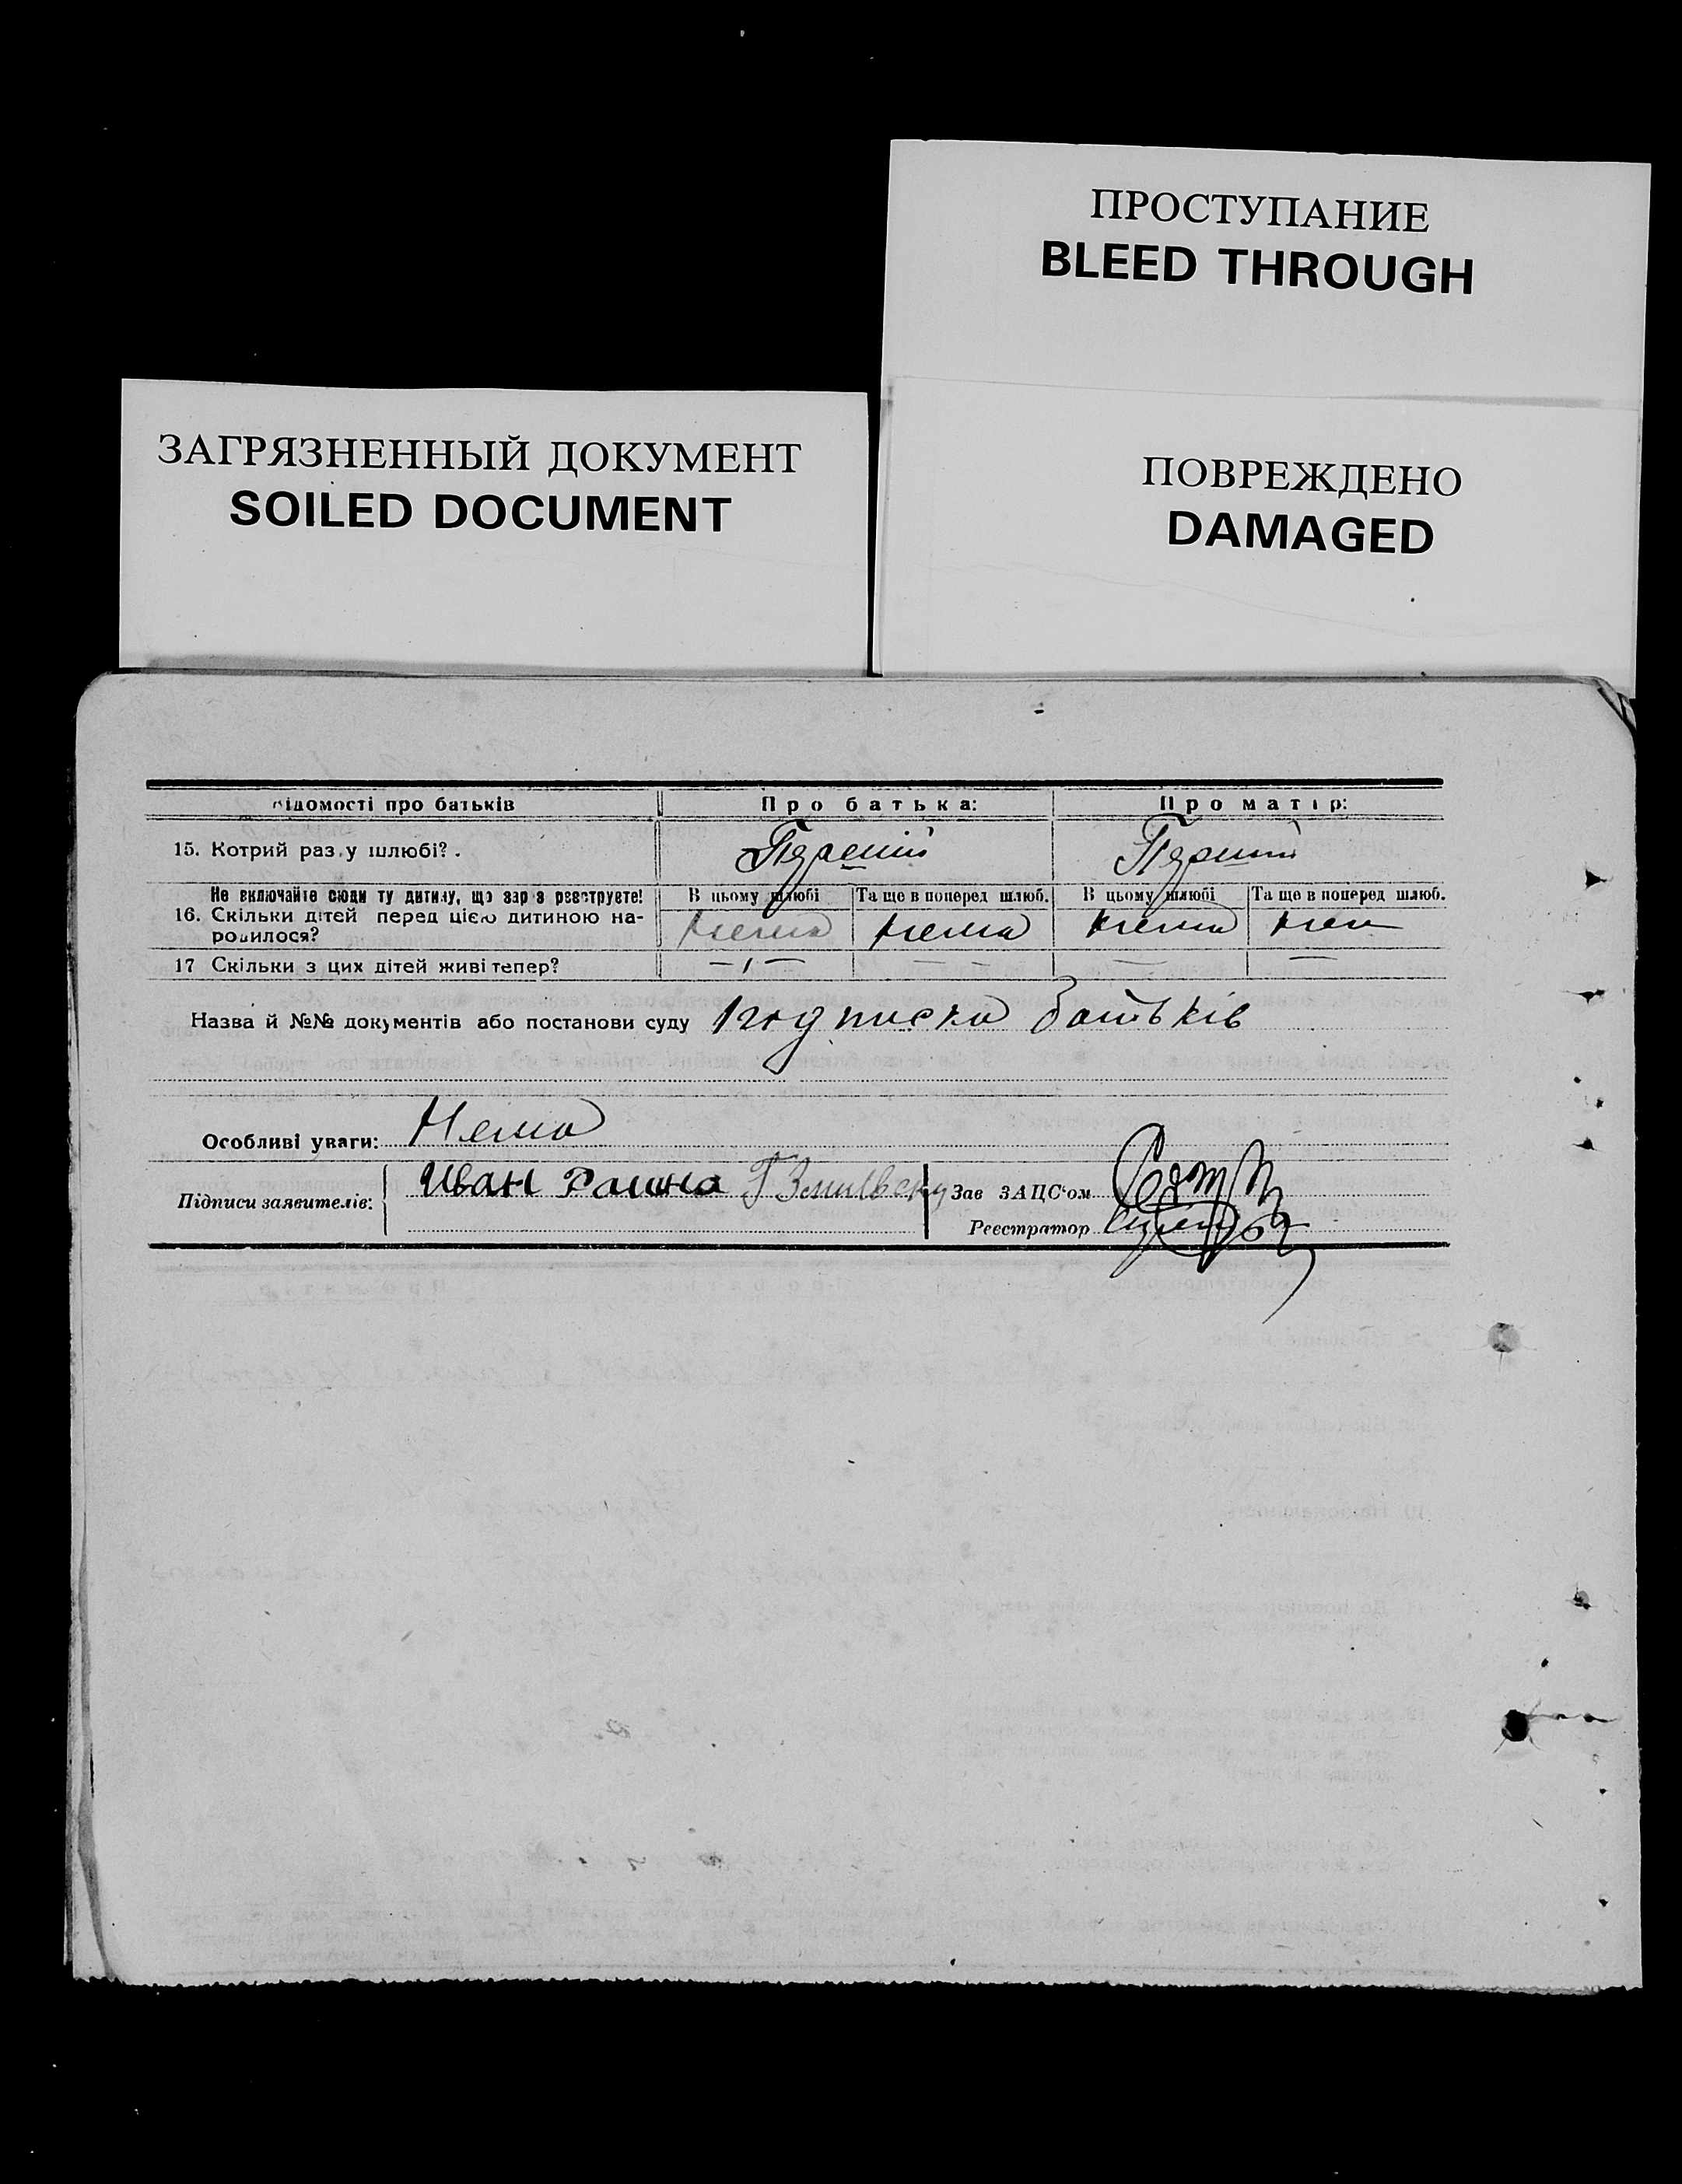 ПРОСТУПАНИЕ
BLEED THROUGH
ЗАГРЯЗНЕННЫЙ ДОКУМЕНТ
SOILED DOCUMENT
ПОВРЕЖДЕНО
DAMAGED
ідомості про батьків Про батька: Про матір:
15. Котрий раз у шлюбі? Перший Перший
Не включайте сюди ту дитину, що зараз реєструєте! В цьому шлюбі Та ще в поперед шлюб. В цьому шлюбі Та ще в поперед шлюб.
16. Скільки дітей перед цією дитиною на-
родилося? нема нема нема нем
17 Скільки з цих дітей живі тепер? — — —
Назва й №№ документів або постанови суду підписка батьків
Особливі уваги: Нема
Підписи заявителів: Иван Зав ЗАЦС'ом
Реєстратор